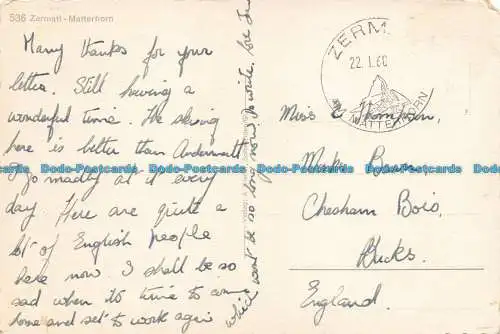 536 Zermatt - Matterhorn
Many thanks for your
letter. Still having a
wonderful time. The skiing
here is better than Andermatt
I go madly at it every
day. There are quite a
lot of English people
here now. I shall be so
sad when its time to come
home and set to work again
which won't be so long now. Do write. love
ZERM
22.1.60
MATTERHORN
Miss C Thompson,
Barn,
Chesham Bois,
Bucks.
England.
Dodo-Postcards Dodo-Postcards Dodo-Postcards Dodo-Postcards Dodo-Postcards